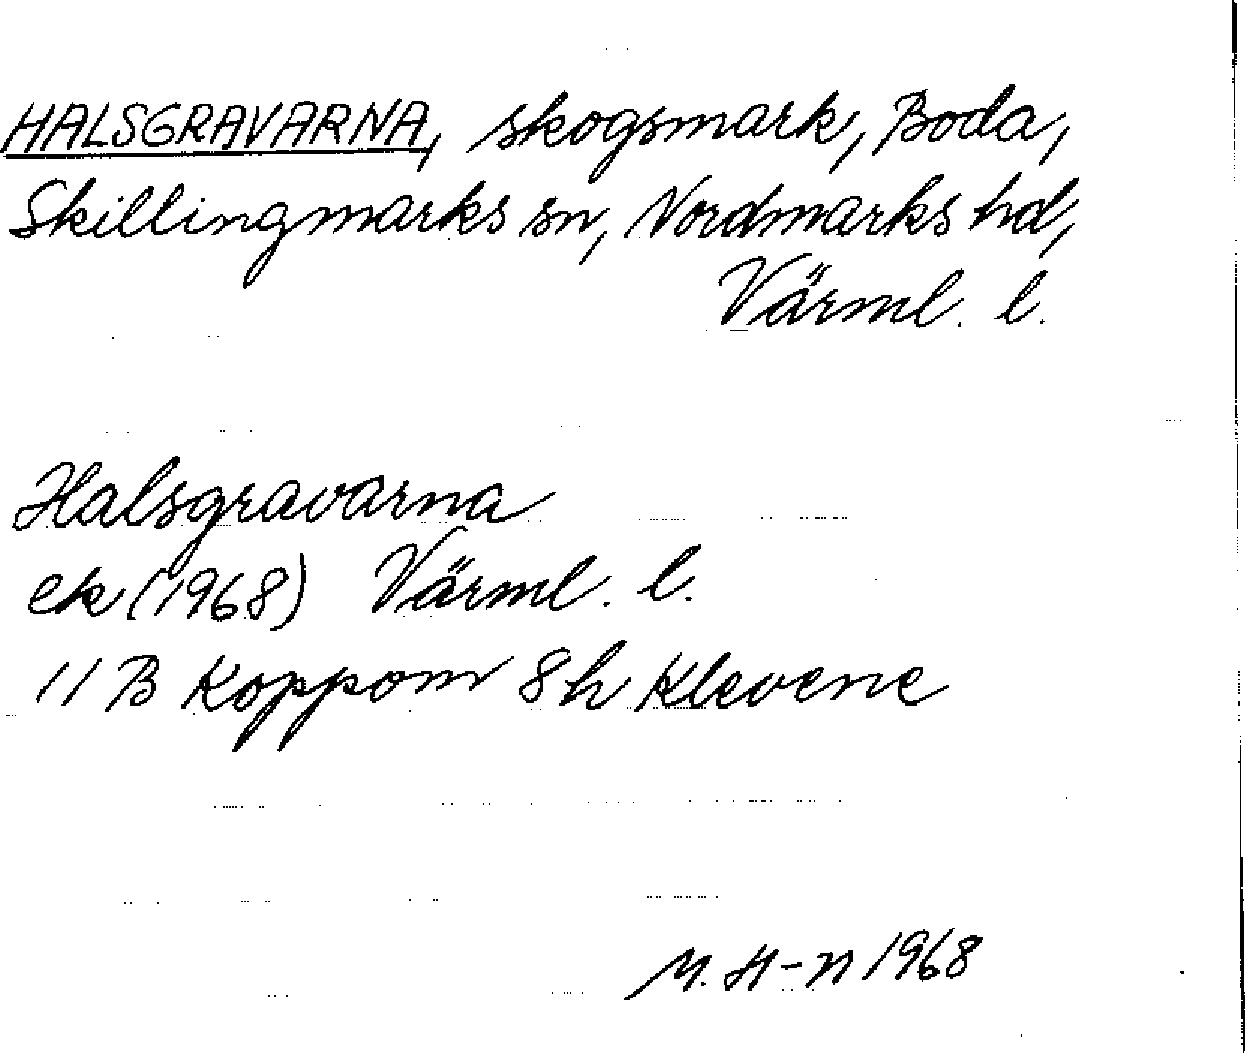 HALSGRAVARNA, skogsmark, Boda,
Skillingmarks sn, Nordmarks hd,
Värml. l.
Halsgravarna
ek (1968) Värml. l.
11 B Koppom 8h Klevene
M. H-n 1968